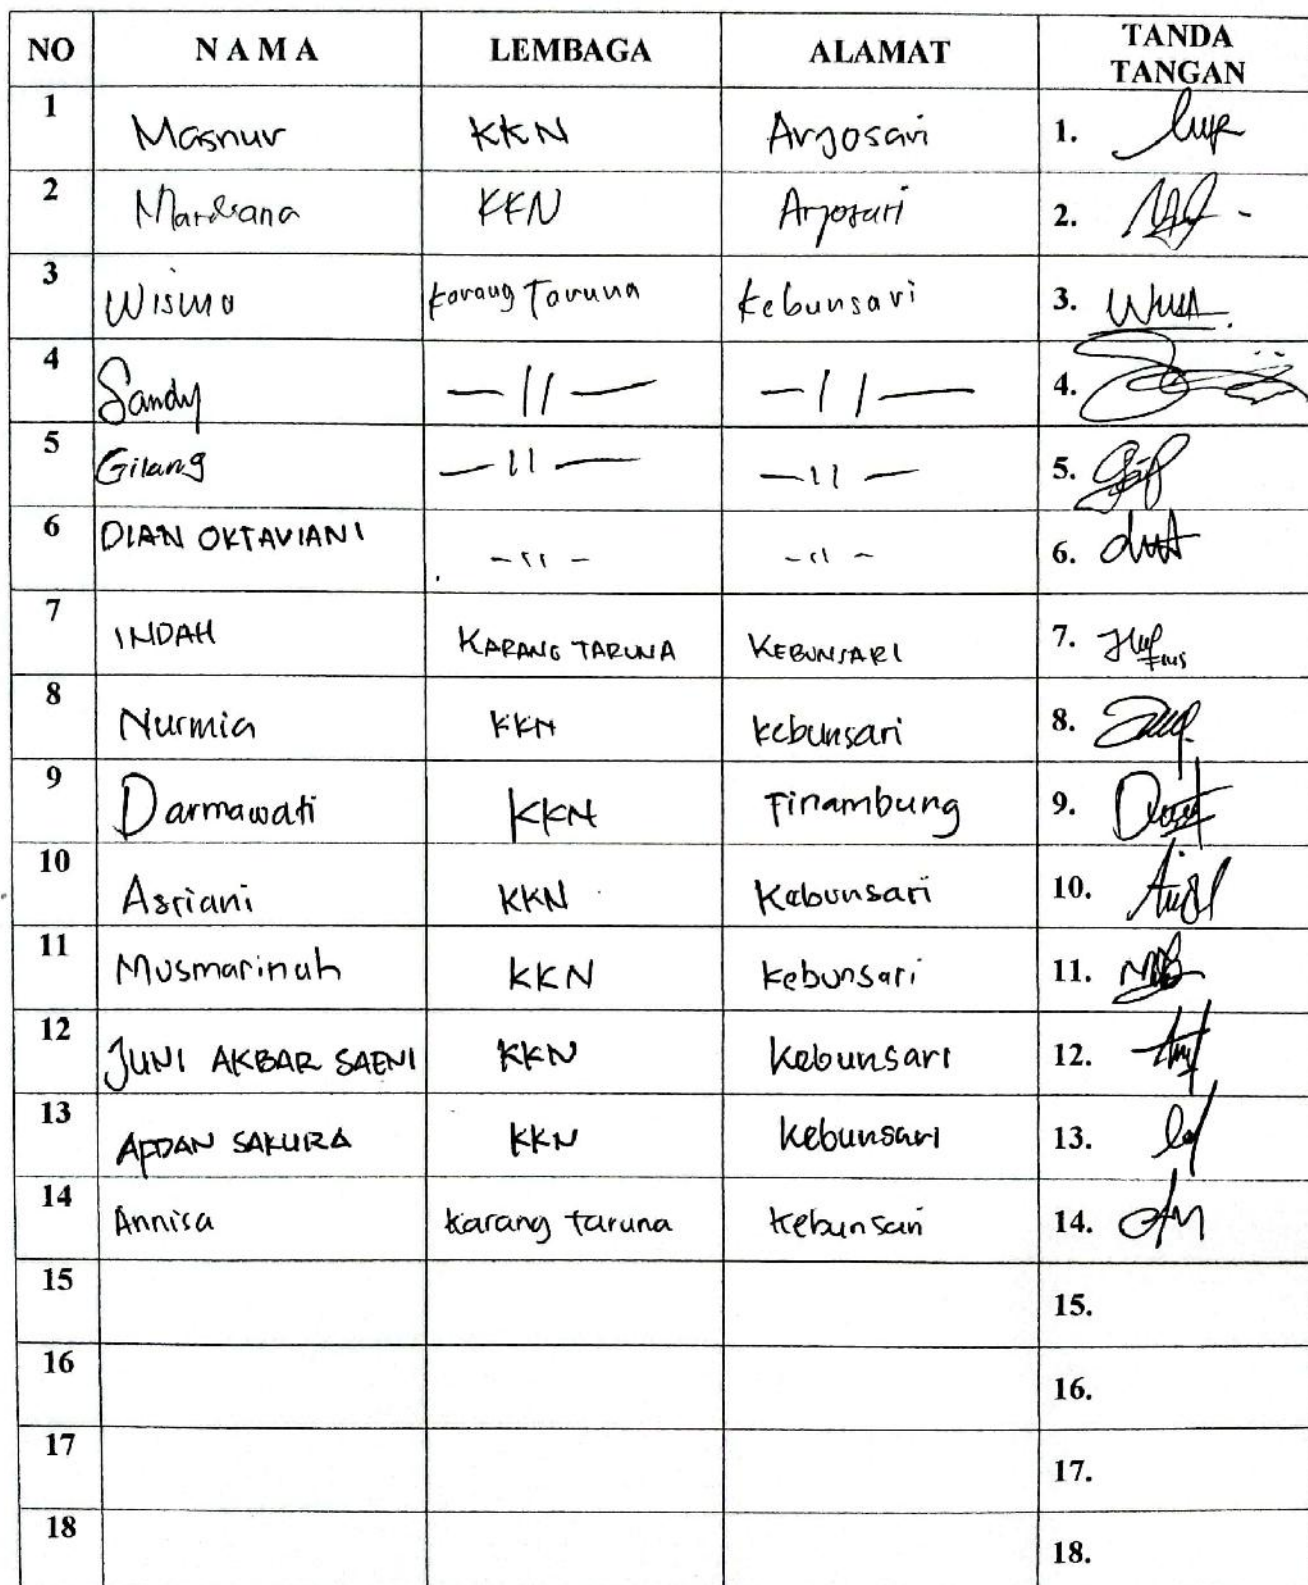 NO NAMA LEMBAGA ALAMAT TANDA TANGAN
1 Masnur KKN Argosari 1.
2 Mardiana KKN Argosari 2.
3 Wisma Karang Taruna Kebunsari 3.
4 Sandy — 11 — — 11 — 4.
5 Gilang — 11 — — 11 — 5.
6 DIAN OKTAVIANI — 11 — — 11 — 6.
7 INDAH KARANG TARUNA KEBUNSARI 7.
8 Nurmia KKN kebunsari 8.
9 Darmawati KKN Tinambung 9.
10 Asriani KKN Kebunsari 10.
11 Musmarinah KKN kebunsari 11.
12 JUNI AKBAR SAENI KKN Kebunsari 12.
13 APDAN SAKURA KKN Kebunsari 13.
14 Annisa Karang taruna Kebunsari 14.
15 15.
16 16.
17 17.
18 18.